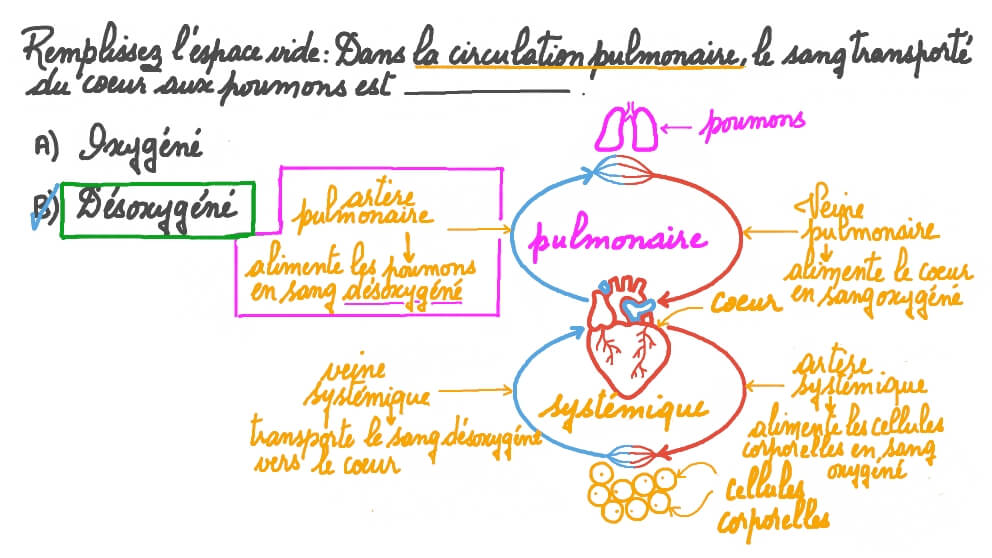 Remplissez l'espace vide: Dans la circulation pulmonaire, le sang transporté
du coeur aux poumons est ___________ .
A) Oxygéné
B) Désoxygéné
poumons
artère
pulmonaire
alimente les poumons
en sang désoxygéné
pulmonaire
Veine
pulmonaire
alimente le coeur
en sang oxygéné
coeur
veine
systémique
transporte le sang désoxygéné
vers le coeur
systémique
artère
systémique
alimente les cellules
corporelles en sang
oxygéné
cellules
corporelles